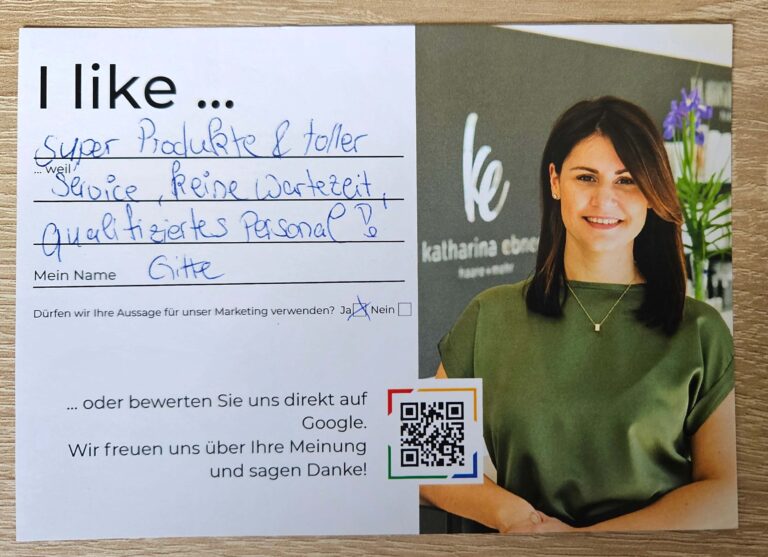 I like ...
super Produkte & toller
... weil
Service, keine Wartezeit,
qualifiziertes Personal!
Mein Name Gitte
Dürfen wir Ihre Aussage für unser Marketing verwenden? Ja Nein
... oder bewerten Sie uns direkt auf
Google.
Wir freuen uns über Ihre Meinung
und sagen Danke!
ke
katharina ebne
haare + mehr